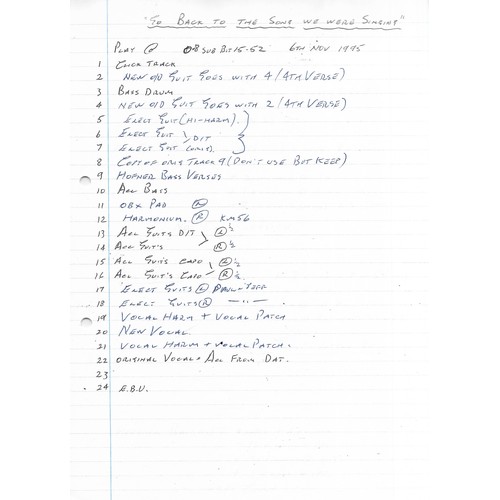 "To Back to the Song we were Singing"
Play @ 08 Sub Bit 15-52 6th Nov 1995
1 Click Track
2 New O/D Guit goes with 4 (4th Verse)
3 Bass Drum
4 New O/D Guit goes with 2 (4th Verse)
5 Elect Guit (Hi-Harm).
6 Elect Guit D/T
7 Elect Guit
8 Copy of orig Track 9 (Don't use but keep)
9 Hofner Bass Verses
10 Acc Bass
11 OBX Pad
12 Harmonium. (R) KM56
13 Acc Guits D/T (L) ½
14 Acc Guit's (R) ½
15 Acc Guit's Capo (L) ½
16 Acc Guit's Capo (R) ½
17 Elect Guits (L) Paul + Jeff
18 Elect Guits (R) — " —
19 Vocal Harm + Vocal Patch
20 New Vocal
21 Vocal Harm + Vocal Patch.
22 Original Vocal + Acc From Dat.
23
24 E.B.U.